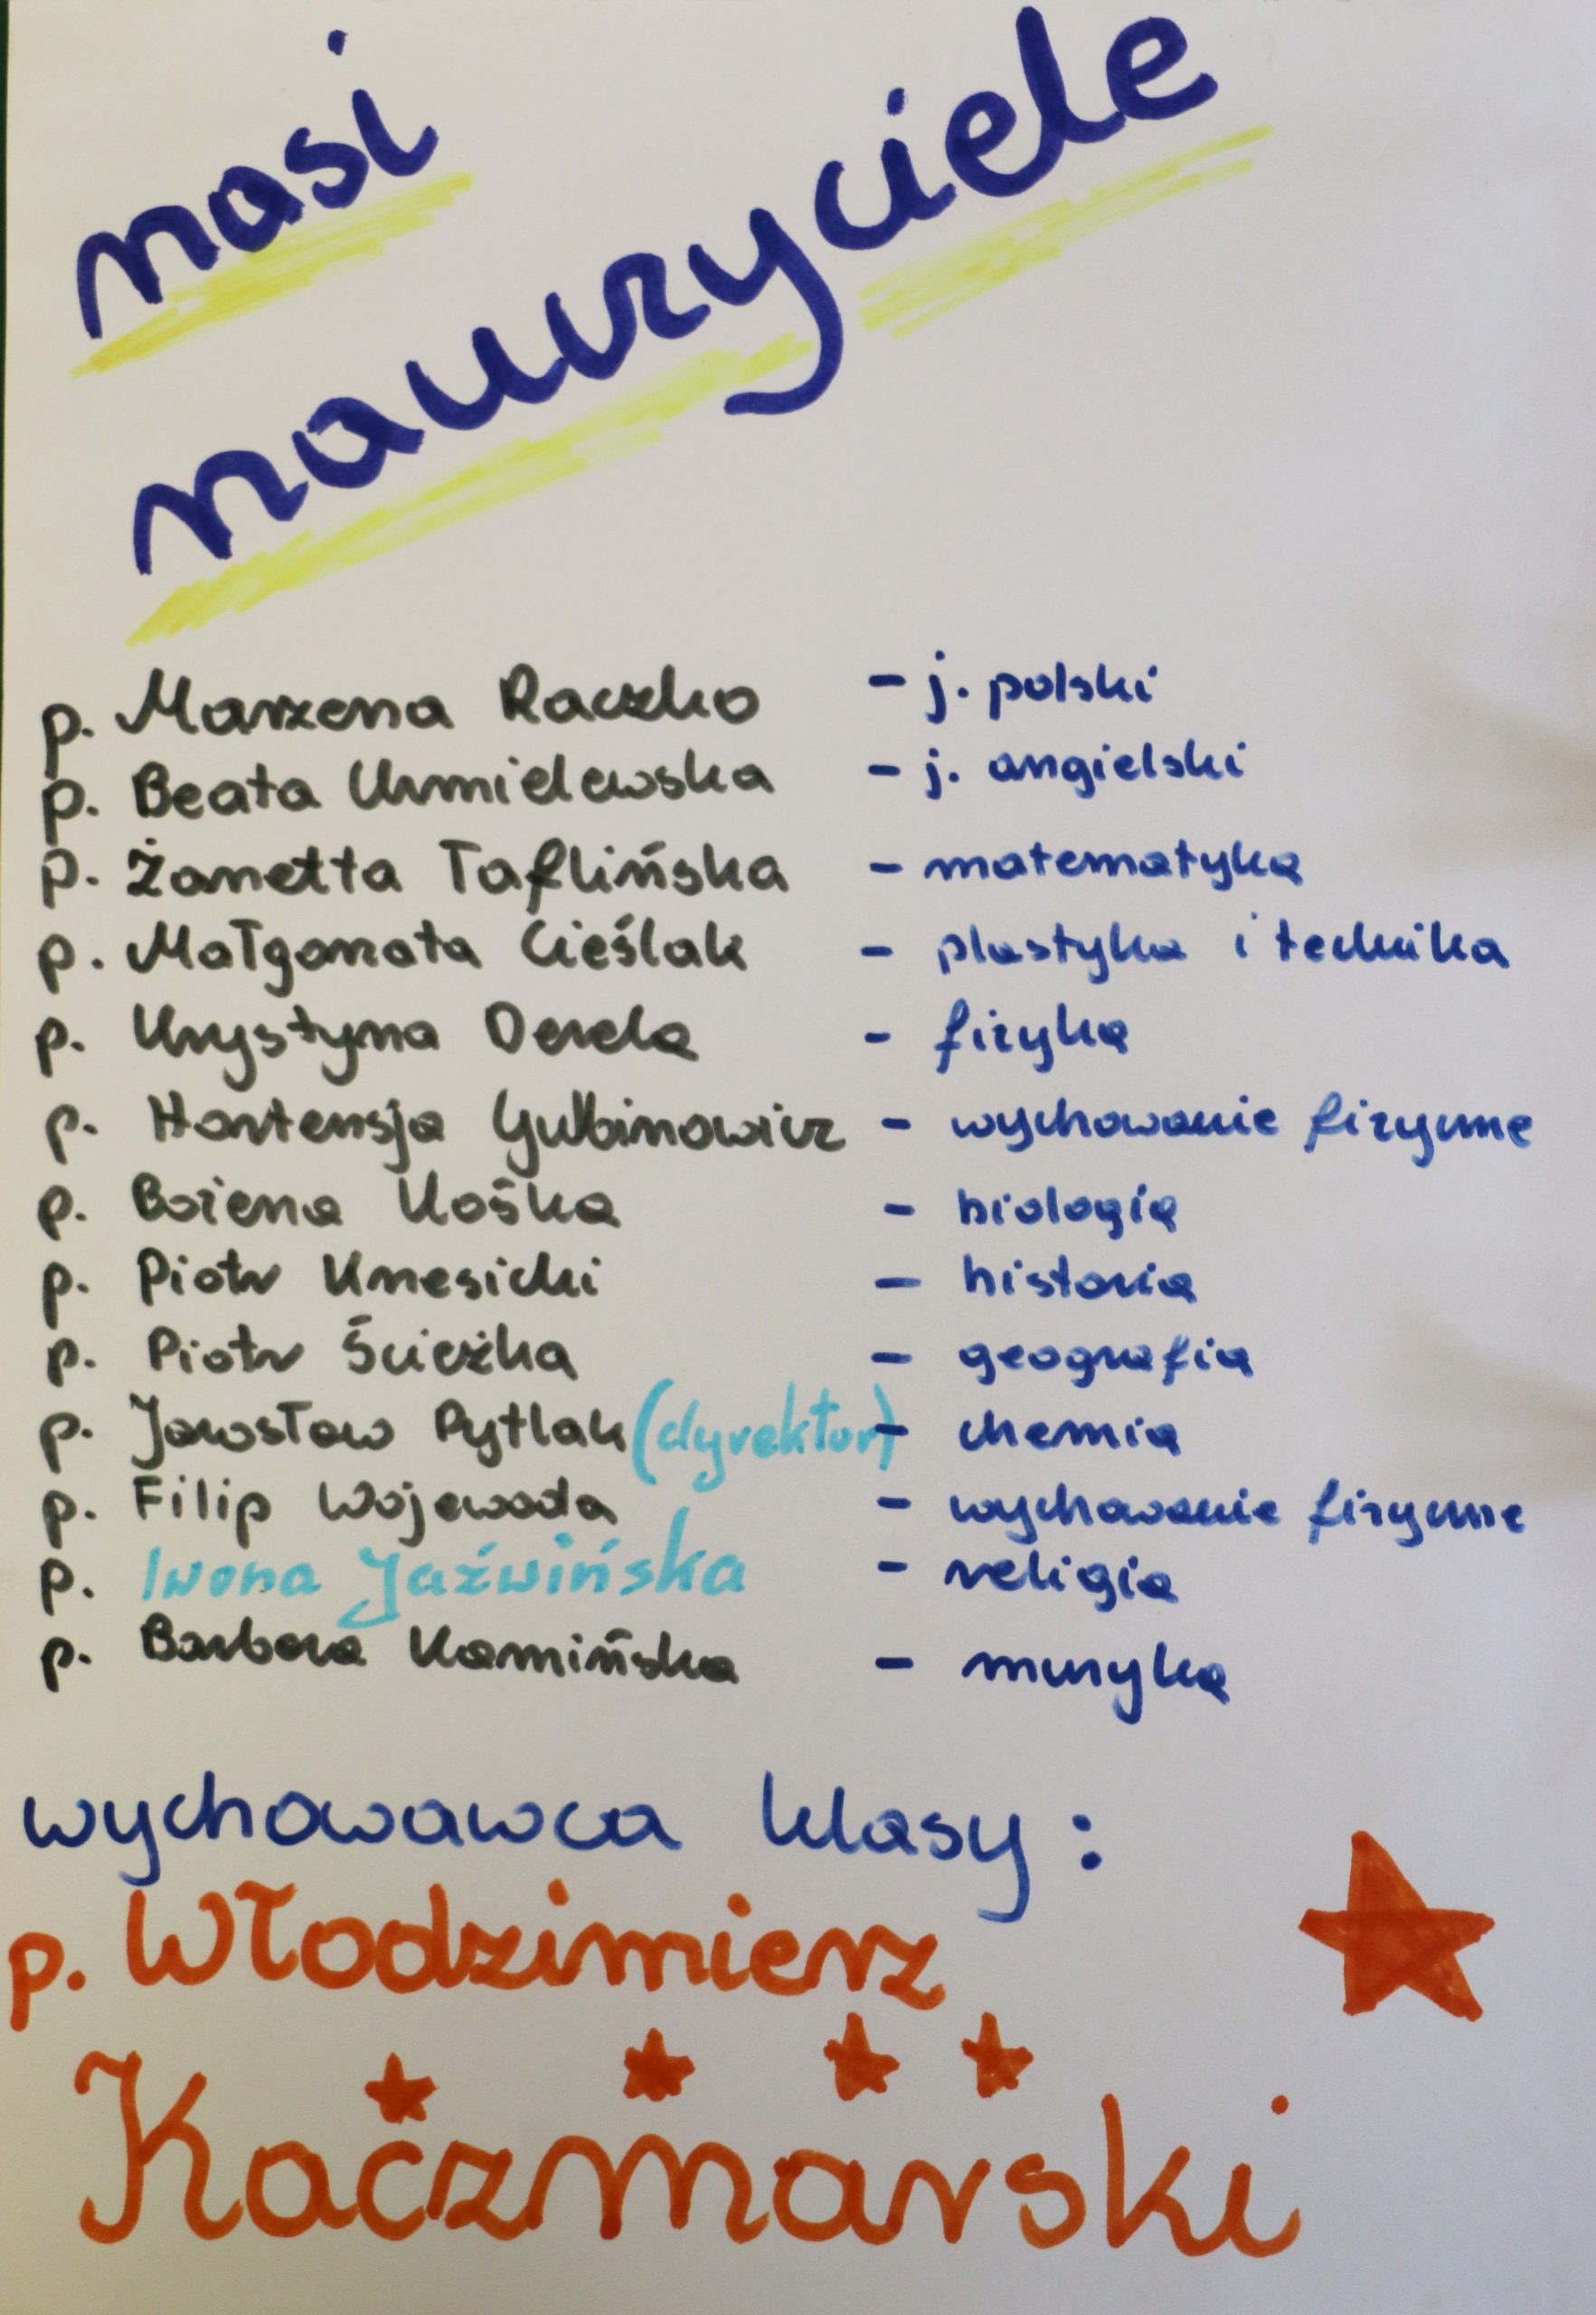 nasi
nauczyciele
p. Marzena Raczko - j. polski
p. Beata Chmielewska - j. angielski
p. Żanetta Taflińska - matematyka
p. Małgorzata Cieślak - plastyka i technika
p. Krystyna Dereda - fizyka
p. Hortensja Gulbinowicz - wychowanie fizyczne
p. Bożena Kośka - biologia
p. Piotr Kresicki - historia
p. Piotr Ścieżka - geografia
p. Jarosław Pytlak (dyrektor) - chemia
p. Filip Wojewoda - wychowanie fizyczne
p. Iwona Jaźwińska - religia
p. Barbara Kamińska - muzyka
wychowawca klasy :
p. Włodzimierz
Kaczmarski